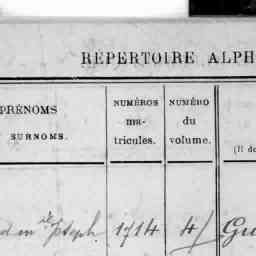 RÉPERTOIRE ALPH
PRÉNOMS
SURNOMS.
NUMÉROS
ma-
tricules.
NUMÉRO
du
volume.
(Il de
Joseph 1714 4 Gu